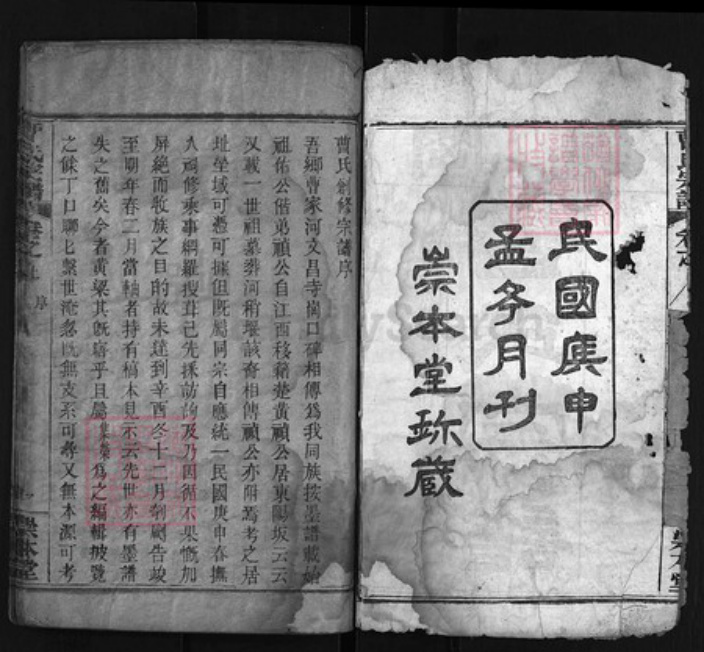 曹氏宗譜
民國庚申
孟冬月刊
崇本堂珍藏
曹氏創修宗譜序
吾鄉曹家河文昌寺崗口碑相傳爲我同族按墨譜載始
祖佑公偕弟禎公自江西移籍楚黃禎公居東陽坂云云
又載一世祖墓葬河稍堰該脊相傳禎公亦附焉考之居
址塋域可憑可據但既屬同宗自應統一民國庚申春撫
人頑修乘事網羅搜葺已先採訪詢及乃因循不果慨加
屏絶而敦族之目的故未達到辛酉冬十二月剞劂告竣
至期年春二月當軸者持有稿本見示云先世亦有墨譜
失之舊矣今者黃梁其旣寤乎且屬集藁爲之編輯披覽
之餘丁口聯匕繫世淹忽既無支系可尋又無本源可考
序
崇本堂